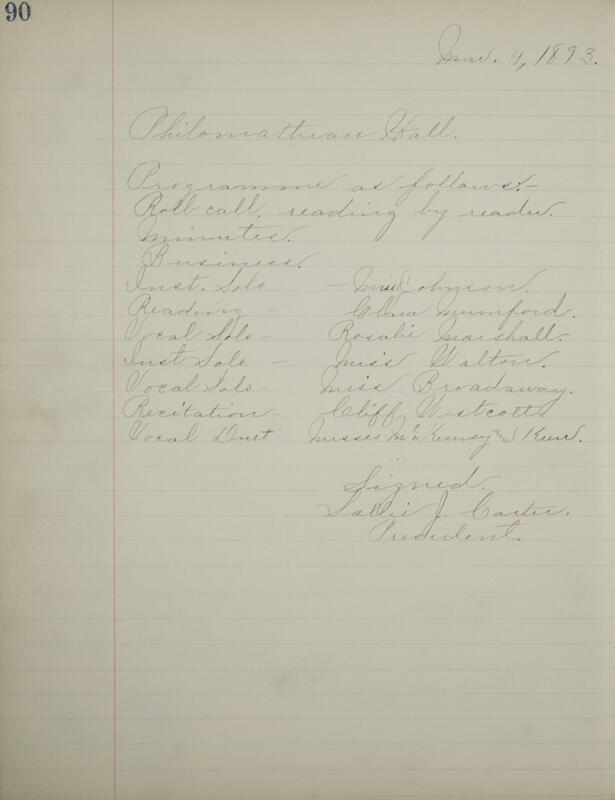 90
Mar. 4, 1893.
Philomathean Hall.
Programme as follows:-
Roll call, reading by reader.
Minutes.
Business.
Inst. Solo - Miss Johnson.
Reading - Clara Mumford.
Vocal Solo - Rosalie Marshall.
Inst. Solo - Miss Walton.
Vocal Solo - Miss Broadaway.
Recitation - Cliff Westcott
Vocal Duet Misses McKenney and Kerr.
Signed.
Sallie J. Carter.
President.